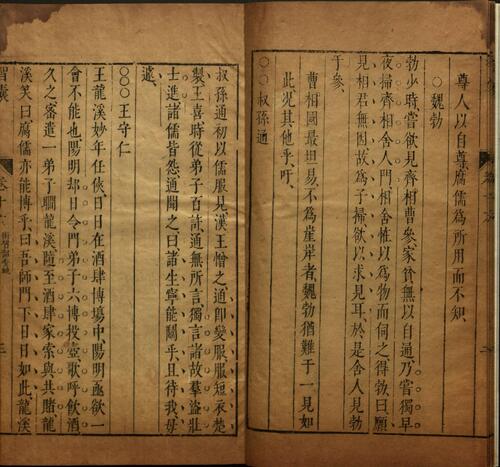 尊人以自尊腐儒爲所用而不知
○魏勃
勃少時嘗欲見齊相曹參家貧無以自通乃嘗獨早
夜掃齊相舍人門相舍怪以爲物而伺之得勃曰願
見相君無因故爲子掃欲以求見耳於是舍人見勃
于參
曹相國最坦易不爲崖岸者魏勃猶難于一見如
此况其他乎吁
○○叔孫通
叔孫通初以儒服見漢王憎之通即變服服短衣楚
製王喜時從弟子百許通無所言獨言諸故羣盜壯
士進諸儒皆怨通聞之曰諸生寧能鬭乎且待我毋
遽
○○王守仁
王龍溪妙年任俠日日在酒肆博塲中陽明亟欲一
會不能也陽明却日令門弟子六博投壺歌呼飲酒
久之密遣一弟子瞷龍溪隨至酒肆家索與共賭龍
溪笑曰腐儒亦能博乎曰吾師門下日日如此龍溪
智囊 卷十六